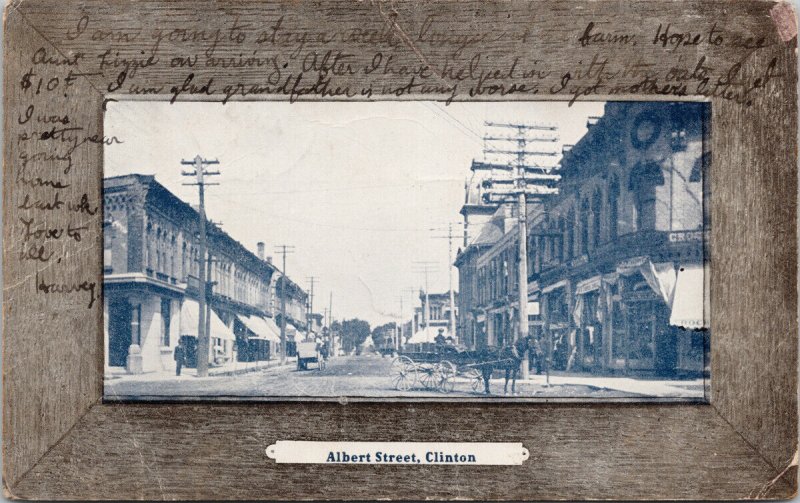 I am going to stay a week longer farm. Hope to see
Aunt Lizzie on arriving. After I have helped in with the oats I get
$10.. I am glad grandfather is not any worse. I got mothers letter.
I was
pretty near
going
home
last wk.
Love to
all.
Harvey.
GROC
Albert Street, Clinton